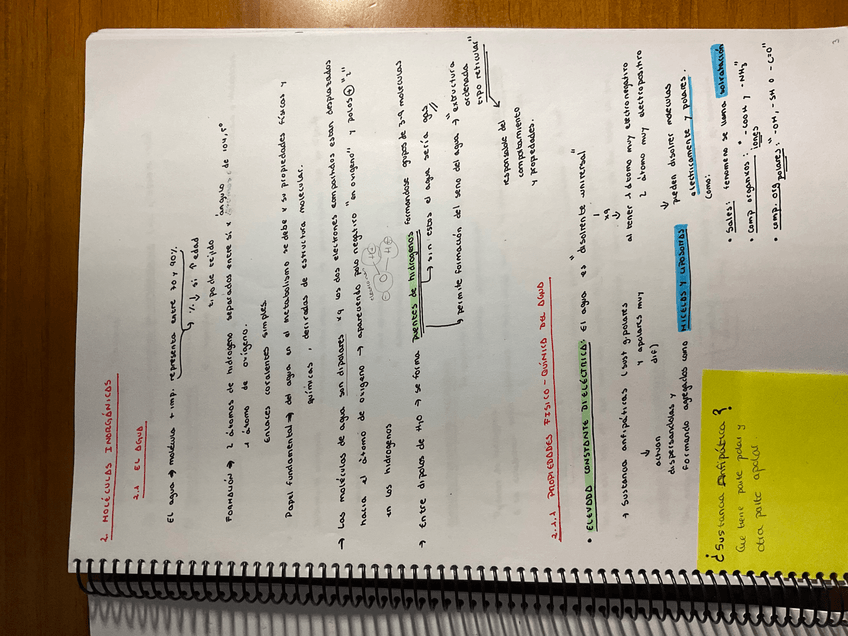 2. MOLÉCULAS INORGÁNICAS
2.1 EL AGUA
El agua → molécula + imp. representa entre 70 y 90%.
% ↓ si ↑ edad
tipo de tejido
FORMACIÓN → 2 átomos de hidrógeno separados entre sí x ángulo de 104,5º
1 átomo de oxígeno.
Enlaces covalentes simples.
Papel fundamental → del agua en el metabolismo se debe x su propiedades físicas y
químicas, derivadas de estructura molecular.
→ Las moléculas de agua son dipolares xq los dos electrones compartidos están desplazados
hacia el átomo de oxígeno → apareciendo polo negativo "en oxígeno" y polos ⊕ "2"
en los hidrógenos
→ Entre dipolos de H2O → se forma puentes de hidrógenos formándose grupos de 3-9 moléculas
→ sin estos el agua sería gas
→ permite formación del seno del agua → "estructura
ordenada
tipo reticular"
responsable del
comportamiento
y propiedades.
2.1.1 PROPIEDADES FISICO-QUÍMICA DEL AGUA
• ELEVADA CONSTANTE DIELÉCTRICA: El agua es "disolvente universal"
xq
al tener 1 átomo muy electronegativo
2 átomo muy electropositivo
↓
pueden disolver moléculas
electricamente y polares.
como:
• Sales: fenómeno se llama solvatación
• Comp orgánicos: "-COOH y -NH3"
iones
• Comp. org polares: "-OH, -SH o -C=O"
→ Sustancia antipáticas (sust g.polares
y apolares muy
dif)
↓
actúan
dispersándolas y
formando agregados como MICELAS Y LIPOSOMAS
¿Sustancia Antipática?
Que tiene parte polar y
otra parte apolar
3